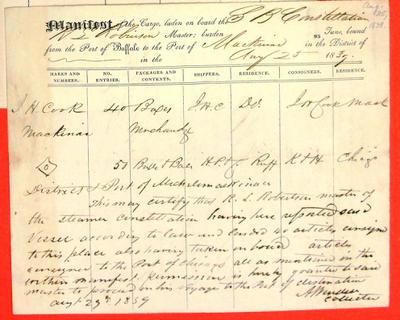 Manifest of the Cargo, laden on board the S B Constellation
Robinson Master; burden 85 Tons, bound
from the Port of Buffalo to the Port of Mackinac in the District of
in the Aug 23 1839.
MARKS AND NUMBERS. NO. ENTRIES. PACKAGES AND CONTENTS. SHIPPERS. RESIDENCE. CONSIGNEES. RESIDENCE.
J. H. Cook 40 Boxes J.H.C Do. J H Cook Mack
Mackinac Merchandze
51 Boxes & Bales H.P. & Co Buff K & H Chicgo
District & Port of Michilimackinac
This may certify that R. L. Robertson master of
the steamer Constellation having here reported said
Vessel according to Law and landed 40 articles consign
to this place also having taken on board article
consigned to the Port of Chicago all as mentioned in the
within manifest permission is hereby granted to said
master to proceed on his voyage to the Port of destination
augt 29th 1839
Collector